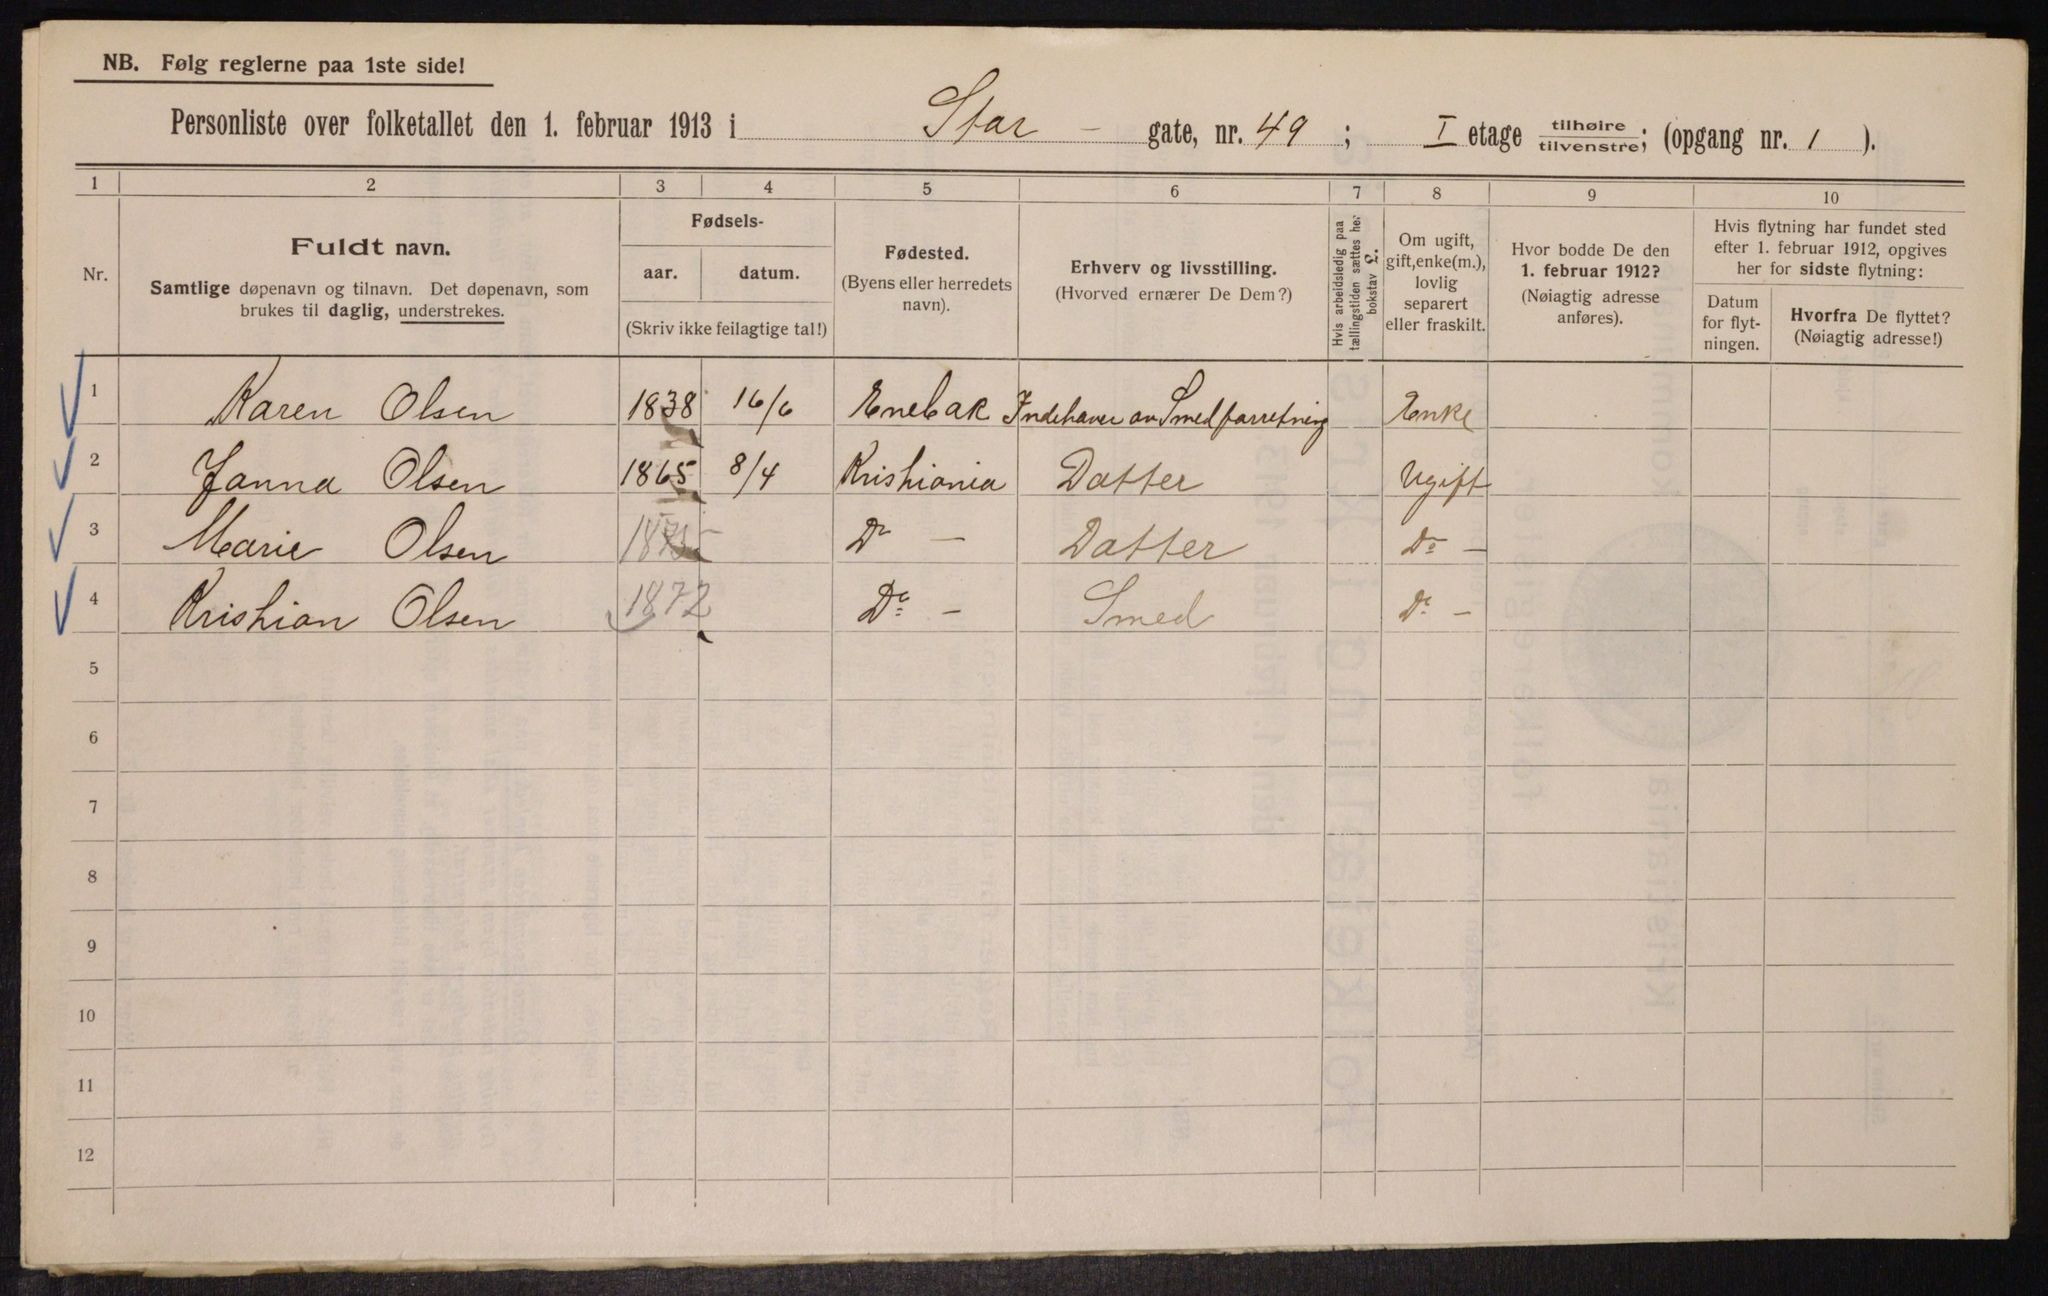 NB. Følg reglerne paa 1ste side!
Personliste over folketallet den 1. februar 1913 i Stor - gate, nr. 49 ; I etage tilhøire tilvenstre; (opgang nr. 1 ).
1 2 3 4 5 6 7 8 9 10
Nr.
Fuldt navn.
Samtlige døpenavn og tilnavn. Det døpenavn, som
brukes til daglig, understrekes.
Fødsels-
aar. datum.
(Skriv ikke feilagtige tal!)
Fødested.
(Byens eller herredets
navn).
Erhverv og livsstilling.
(Hvorved ernærer De Dem?)
Hvis arbeidsledig paa
tællingstiden sættes her
bokstav L.
Om ugift,
gift, enke(m.),
lovlig
separert
eller fraskilt.
Hvor bodde De den
1. februar 1912?
(Nøiagtig adresse
anføres).
Hvis flytning har fundet sted
efter 1. februar 1912, opgives
her for sidste flytning:
Datum
for flyt-
ningen.
Hvorfra De flyttet?
(Nøiagtig adresse!)
1 Karen Olsen 1838 16/6 Enebak Indehaver av Smedforretning Enke
2 Janna Olsen 1865 8/4 Kristiania Datter Ugift
3 Marie Olsen Do - Datter Do -
4 Kristian Olsen 1872 Do - Smed Do -
5
6
7
8
9
10
11
12